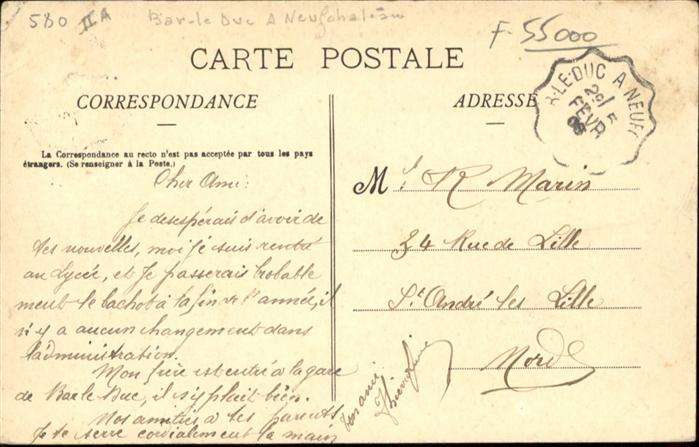 580 IIA
Bar-le Duc A Neufchateau
F-55000
CARTE POSTALE
CORRESPONDANCE
ADRESSE
R-LE-DUC A NEUF
29
FEVR
08
La Correspondance au recto n'est pas acceptée par tous les pays
étrangers. (Se renseigner à la Poste.)
Cher Ami:
Je desespérais d'avoir de
tes nouvelles, moi je suis rentré
au Lycée, et je passerais probable
ment le bachot à la fin de l'année, il
n'y a aucun changement dans
l'administration.
Mon frère est entré à la gare
de Bar le Duc, il s'y plait bien.
Nos amitiés à tes parents
Je te serre cordialement la main
Ton ami
Mr. R Marin
34 Rue de Lille
St André les Lille
Nord